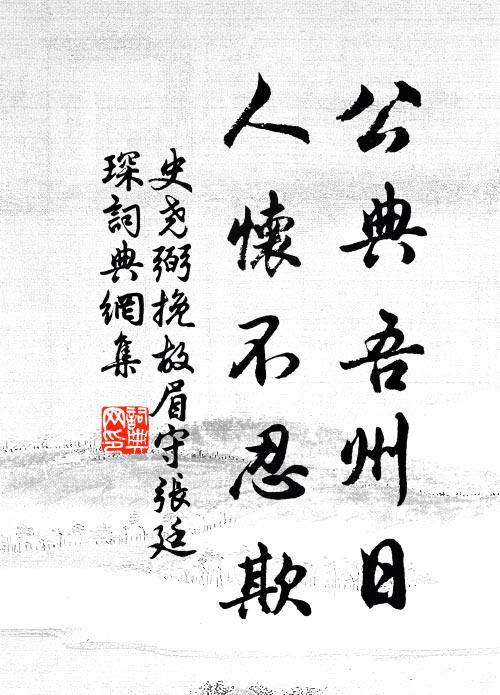 公典吾州日
人懷不忍欺
史堯弼挽故眉守張廷
琛詞典網集
詞典
网印